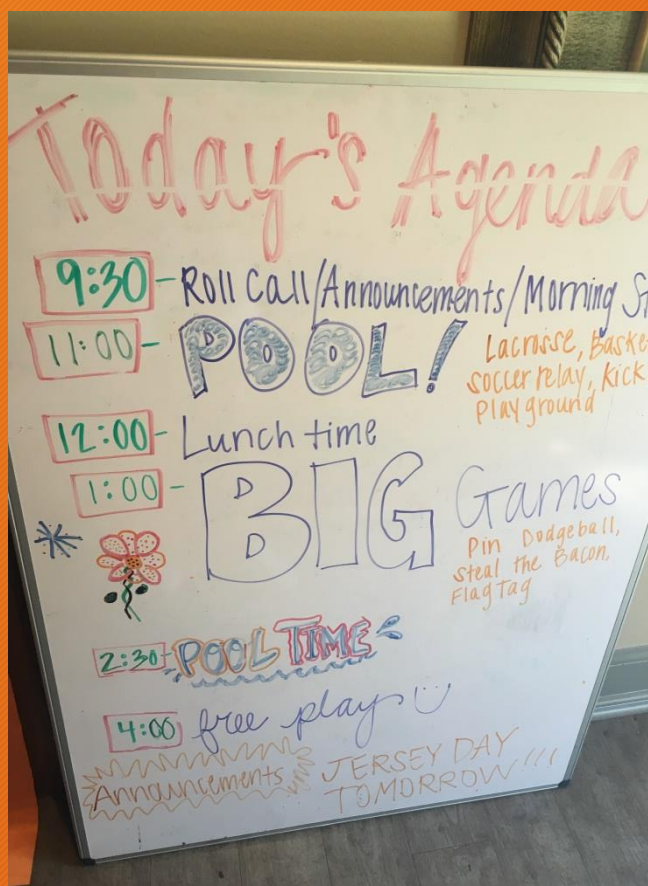 Today's Agenda
9:30 - Roll Call/Announcements/Morning
11:00 - POOL!
Lacrosse,
soccer relay, Kick
Playground
12:00 - Lunch time
1:00 - BIG Games
Pin Dodgeball,
Steal the Bacon,
Flag Tag
2:30 - POOL TIME
4:00 free play
Announcements JERSEY DAY
TOMORROW!!!